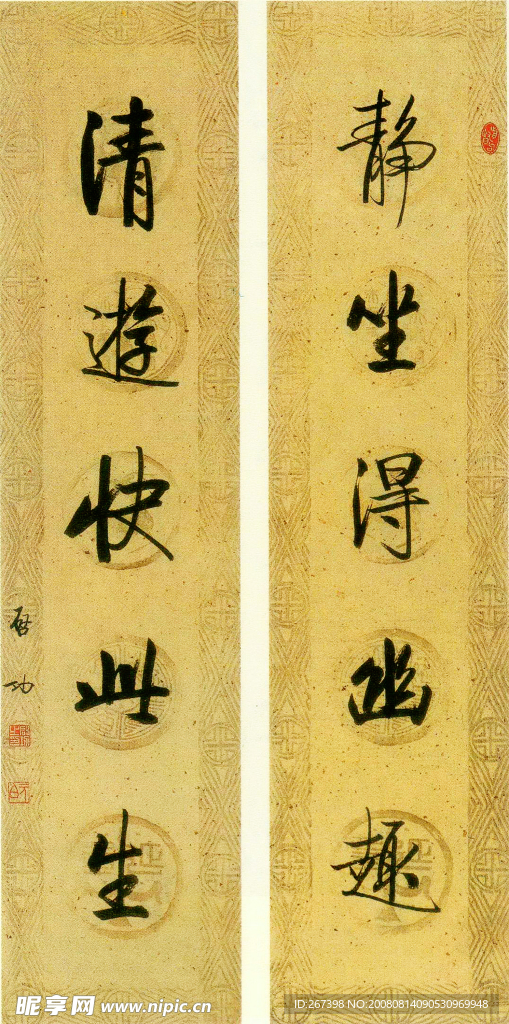 静坐得幽趣
清遊快此生
启功
昵享网 www.nipic.cn
ID:267398 NO:20080814090530969948